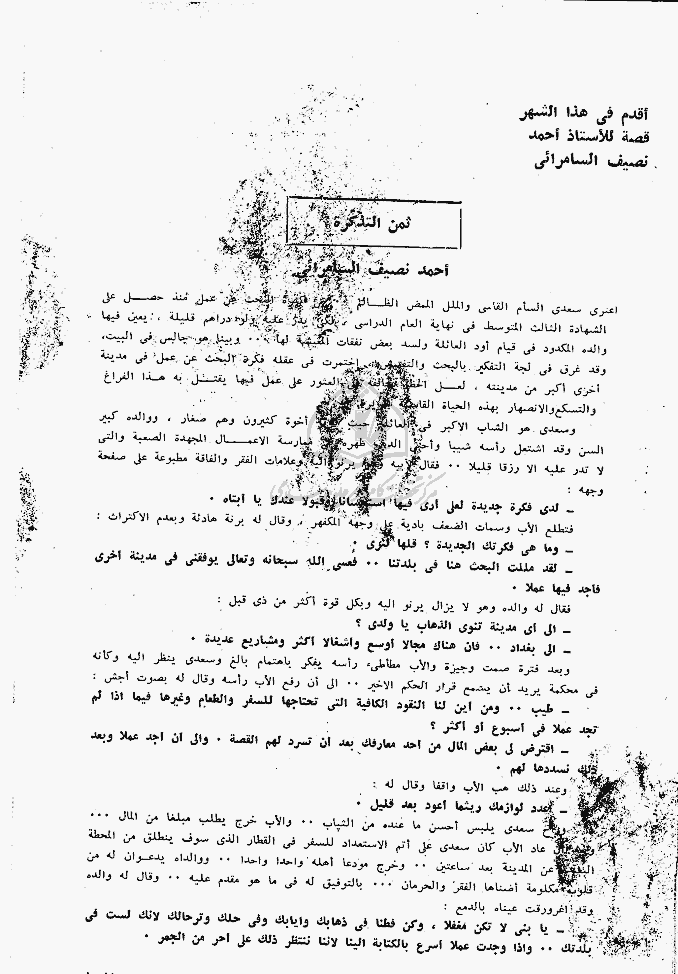 أقدم فى هذا الشهر
قصة للأستاذ أحمد
نصيف السامرائى
ثمن التذكرة
أحمد نصيف السامرائى
اعترى سعدى السأم القاسى والملل الممض الظـــالم عن عمل منذ حصـــل على
الشهادة الثالث المتوسط فى نهاية العام الدراسى ، لكى يدر عليه ولو دراهم قليلة ، يعين فيها
والده المكدود فى قيام أود العائلة ولسد بعض نفقات لها ٠٠ وبينا هو جالس فى البيت،
وقد غرق فى لجة التفكير بالبحث اختمرت فى عقله فكرة البحث عن عمل فى مدينة
أخرى أكبر من مدينته ، لعــل العثور على عمل فيها يقتــل به هــذا الفراغ
والتسكع والانصهار بهذه الحياة
وسعدى هو الشاب الاكبر فى العائلة حيث أخوة كثيرون وهم صغار ، ووالده كبير
السن وقد اشتعل رأسه شيبا ظهره ممارسة الاعمـــال المجهدة الصعبة والتى
لا تدر عليه الا رزقا قليلا ٠٠ فقال لأبيه يرنو اليه وعلامات الفقر والفاقة مطبوعة على صفحة
وجهه :
ــ لدى فكرة جديدة لعلى أرى فيها استحسانا وقبولا عندك يا أبتاه ٠
فتطلع الأب وسمات الضعف بادية على وجهه المكفهر ، وقال له برنة هادئة وبعدم الاكتراث :
ــ وما هى فكرتك الجديدة ؟ قلها لنرى ٠
ــ لقد مللت البحث هنا فى بلدتنا ٠٠ فعسى الله سبحانه وتعالى يوفقنى فى مدينة أخرى
فأجد فيها عملا ٠
فقال له والده وهو لا يزال يرنو اليه وبكل قوة أكثر من ذى قبل :
ــ الى أى مدينة تنوى الذهاب يا ولدى ؟
ــ الى بغداد ٠٠ فان هناك مجالا أوسع واشغالا أكثر ومشاريع عديدة ٠
وبعد فترة صمت وجيزة والأب مطأطىء رأسه يفكر باهتمام بالغ وسعدى ينظر اليه وكأنه
فى محكمة يريد أن يسمع قرار الحكم الاخير ٠٠ الى أن رفع الأب رأسه وقال له بصوت أجش :
ــ طيب ٠٠ ومن أين لنا النقود الكافية التى تحتاجها للسفر والطعام وغيرها فيما اذا لم
تجد عملا فى أسبوع أو أكثر ؟
ــ اقترض لى بعض المال من أحد معارفك بعد أن تسرد لهم القصة ٠ والى أن أجد عملا وبعد
ذلك نسددها لهم ٠
وعند ذلك هب الأب واقفا وقال له :
لوازمك ريثما أعود بعد قليل ٠
سعدى يلبس أحسن ما عنده من الثياب ٠٠ والأب خرج يطلب مبلغا من المال ٠٠٠
عاد الأب كان سعدى على أتم الاستعداد للسفر فى القطار الذى سوف ينطلق من المحطة
عن المدينة بعد ساعتين ٠٠ وخرج مودعا أهله واحدا واحدا ٠٠ ووالداه يدعوان له من
قلوب مكلومة أضناها الفقر والحرمان ٠٠٠ بالتوفيق له فى ما هو مقدم عليه ٠٠ وقال له والده
وقد اغرورقت عيناه بالدمع :
ــ يا بنى لا تكن مغفلا ، وكن فطنا فى ذهابك وايابك وفى حلك وترحالك لانك لست فى
بلدتك ٠٠ واذا وجدت عملا أسرع بالكتابة الينا لاننا ننتظر ذلك على أحر من الجمر ٠